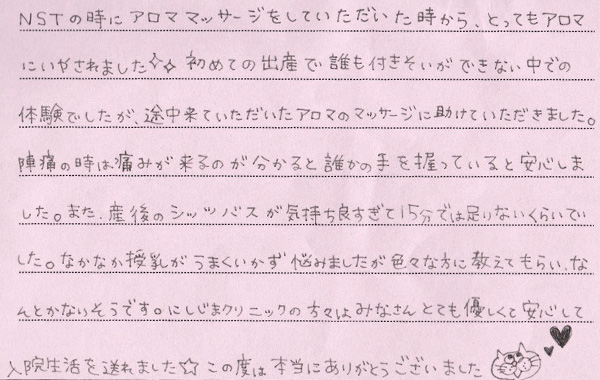 NSTの時にアロママッサージをしていただいた時から、とってもアロマ
にいやされました☆☆ 初めての出産で誰も付きそいができない中での
体験でしたが、途中来ていただいたアロマのマッサージに助けていただきました。
陣痛の時は痛みが来るのが分かると誰かの手を握っていると安心しま
した。また、産後のシッツバスが気持ち良すぎて15分では足りないくらいでい
した。なかなか授乳がうまくいかず悩みましたが色々な方に教えてもらい、な
んとかないそうです。にしじまクリニックの方々はみなさんとても優しくて安心して
入院生活を送れました☆ この度は本当にありがとうございました